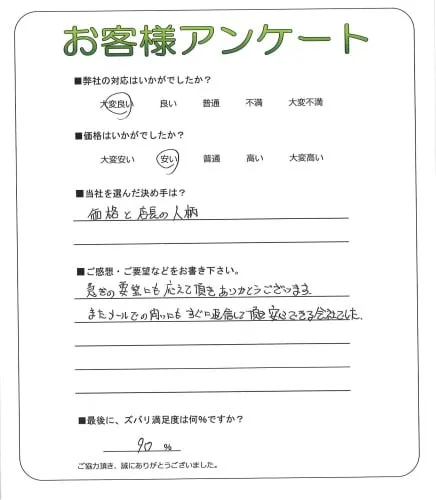 お客様アンケート
■弊社の対応はいかがでしたか？
大変良い 良い 普通 不満 大変不満
■価格はいかがでしたか？
大変安い 安い 普通 高い 大変高い
■当社を選んだ決め手は？
価格と店長の人柄
■ご感想・ご要望などをお書き下さい。
急な要望にも応えて頂きありがとうございます。
またメールでの問いにもすぐに返信して頂き安心できる会社でした。
■最後に、ズバリ満足度は何%ですか？
90 %
ご協力頂き、誠にありがとうございました。